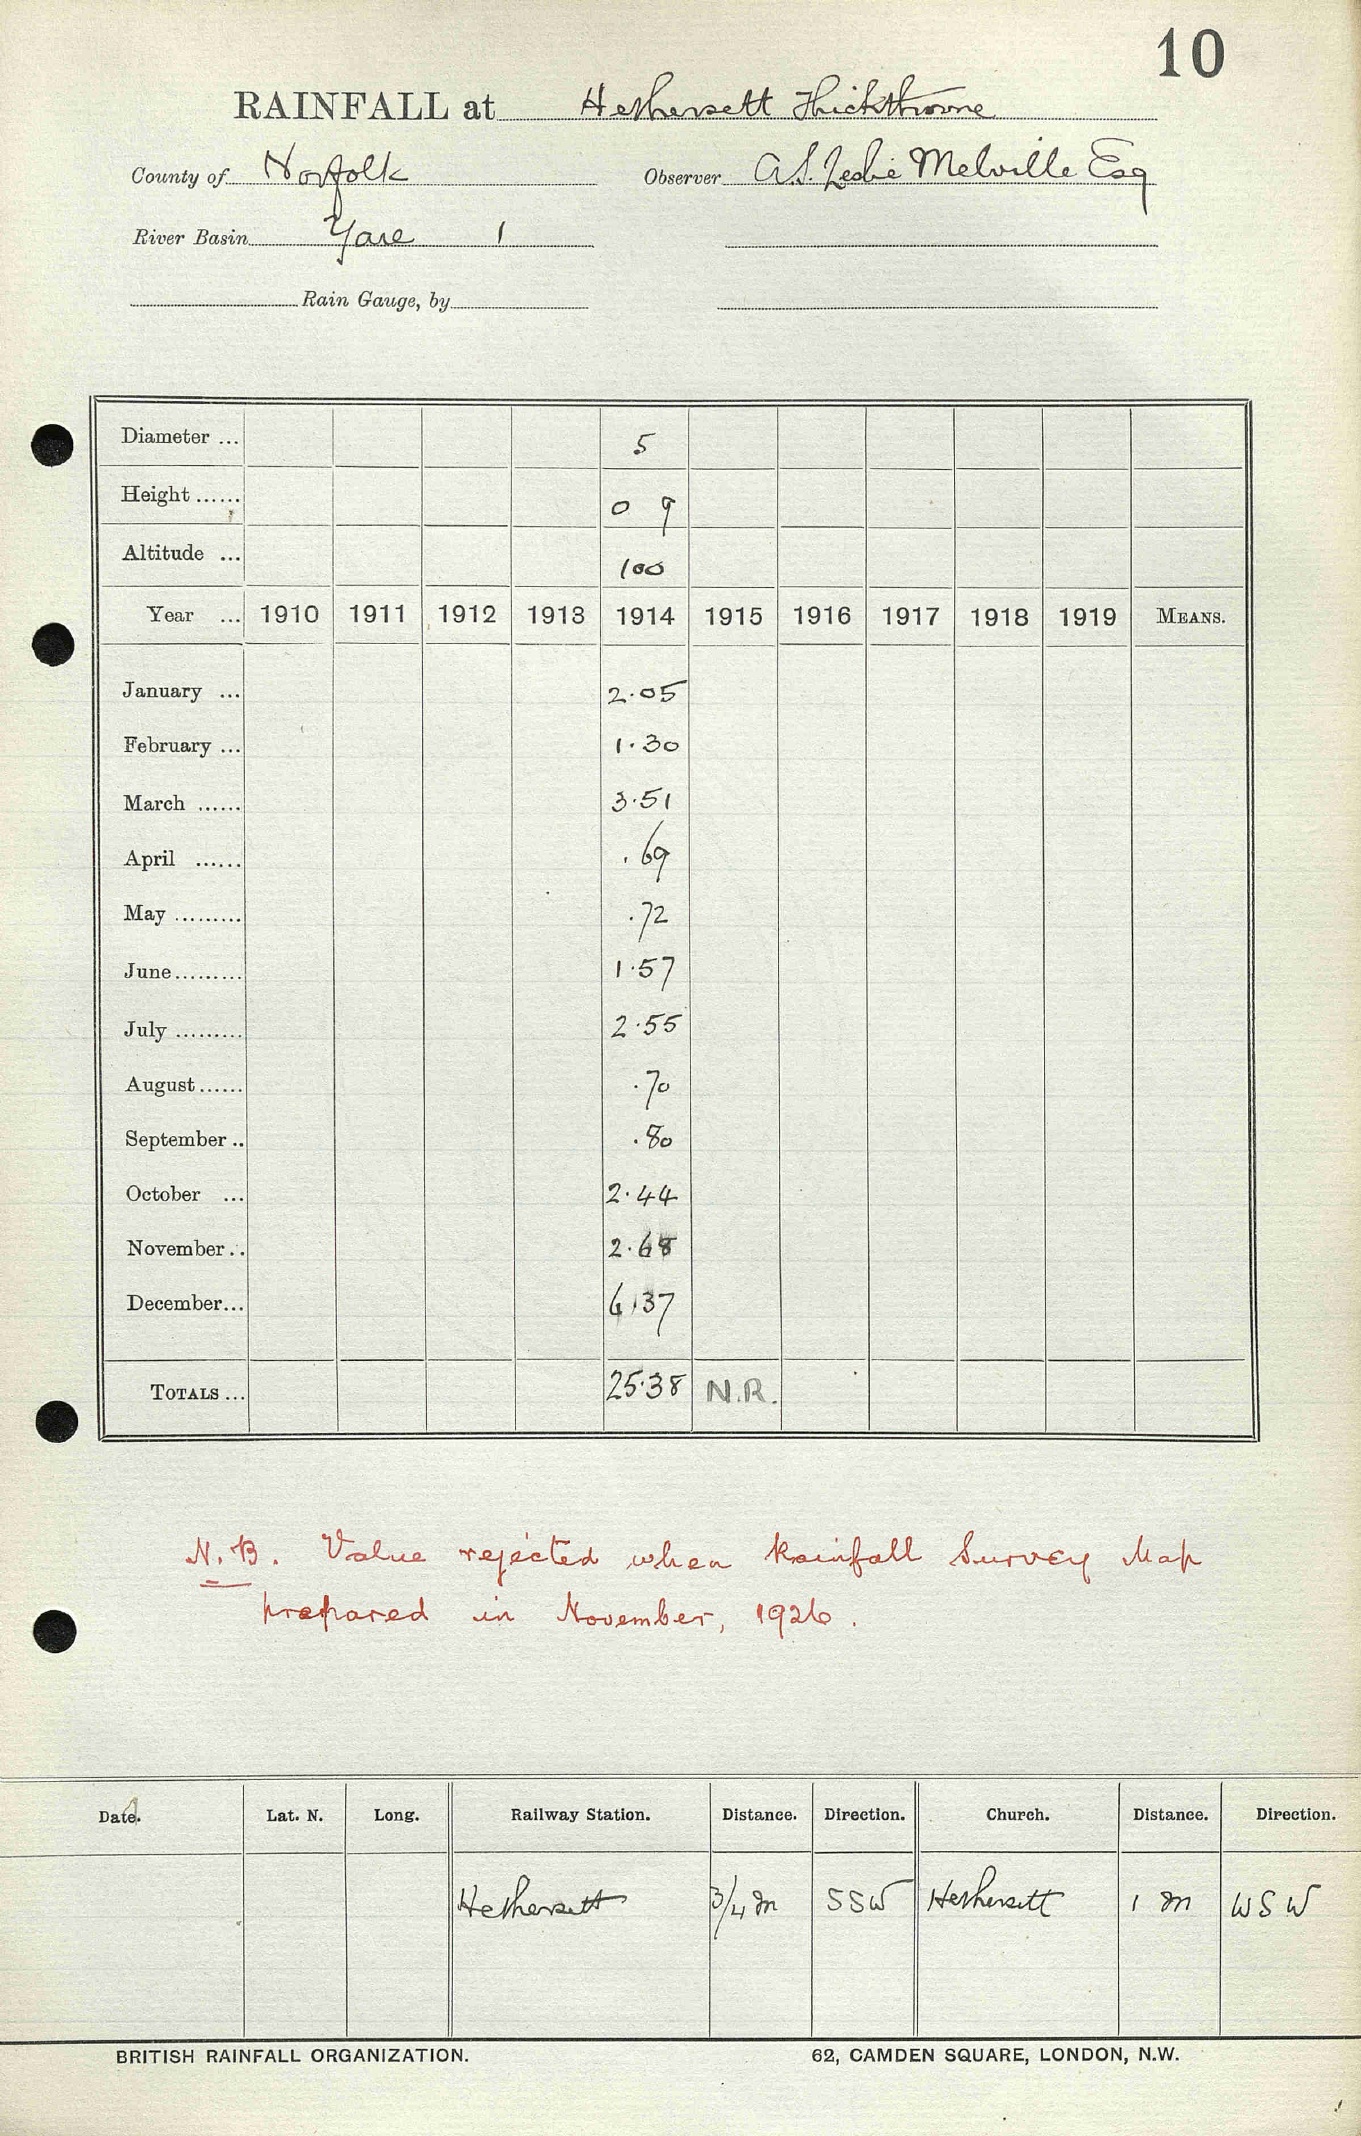 10
RAINFALL at Hethersett Thickthorne
County of Norfolk Observer A.S. Leslie Melville Esq
River Basin Yare 1
Rain Gauge, by
Diameter ... 5
Height ...... 0 9
Altitude ... 100
Year ... 1910 1911 1912 1913 1914 1915 1916 1917 1918 1919 MEANS.
January ... 2.05
February ... 1.30
March ...... 3.51
April ...... .69
May ......... .72
June ......... 1.57
July ......... 2.55
August ...... .70
September .. .80
October ... 2.44
November .. 2.68
December ... 6.37
TOTALS ... 25.38 N.R.
N.B. Value rejected when Rainfall Survey Map
prepared in November, 1926.
Date. Lat. N. Long. Railway Station. Distance. Direction. Church. Distance. Direction.
Hethersett 3/4 m SSW Hethersett 1 m WSW
BRITISH RAINFALL ORGANIZATION. 62, CAMDEN SQUARE, LONDON, N.W.